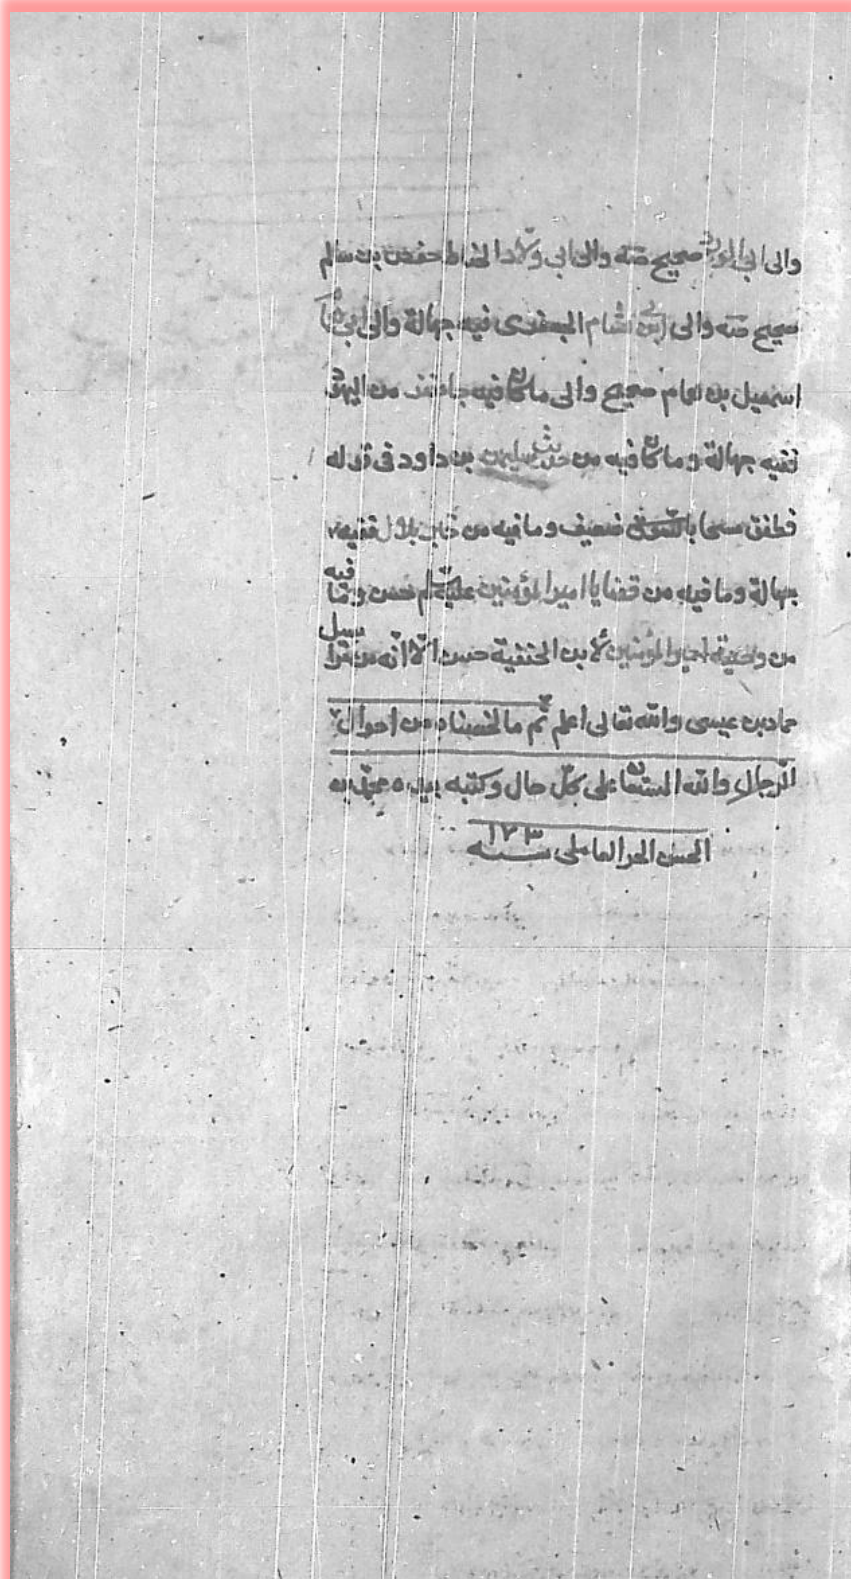 والى ابى صحيح صه والى ابى ولاد الحناط حفص بن سالم
صحيح صه والى ابى هشام الجعفرى فيه جهالة والى ابى
اسمعيل بن همام صحيح والى ما كان فيه جاء نفر من اليهود
ففيه جهالة وما كان فيه من حديث سليمن بن داود فى قوله
فطفق مسحا بالسوق ضعيف وما فيه من خبر بلال ففيه
جهالة وما فيه من قضايا امير المؤمنين عليه السلم حسن وما فيه
من وصية امير المؤمنين لابن الحنفية حسن الا انه من مراسيل
حماد بن عيسى والله تعالى اعلم تم ما لخصناه من احوال
الرجال والله المستعان على كل حال وكتبه بيده محمد بن
الحسن الحر العاملى سنه ١٧٣